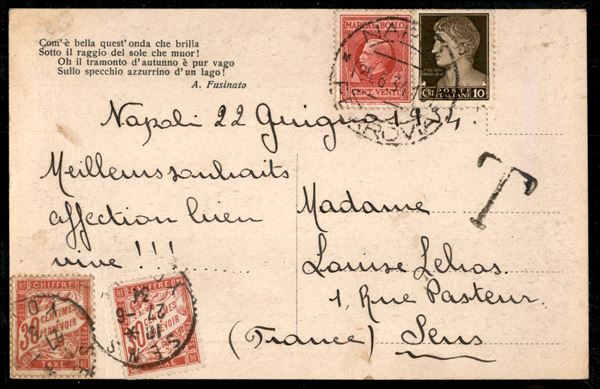 Com'è bella quest'onda che brilla
Sotto il raggio del sole che muor!
Oh il tramonto d'autunno è pur vago
Sullo specchio azzurrino d'un lago!
A. Fusinato
MARCA DA BOLLO
CENT. VENTI
POSTE
ITALIANE 10
NAPOLI
FERROVIA
Napoli 22 Guigno 1934
T
Meilleurs souhaits
affection bien
vive !!!
Madame
Louise Lebas
1, Rue Pasteur
(France) Sens
CHIFFRE
30
CENTIMES
À PERCEVOIR
TAXE
CHIFFRE
CENTIMES
PERCEVOIR
TAXE
SENS
27-6
34